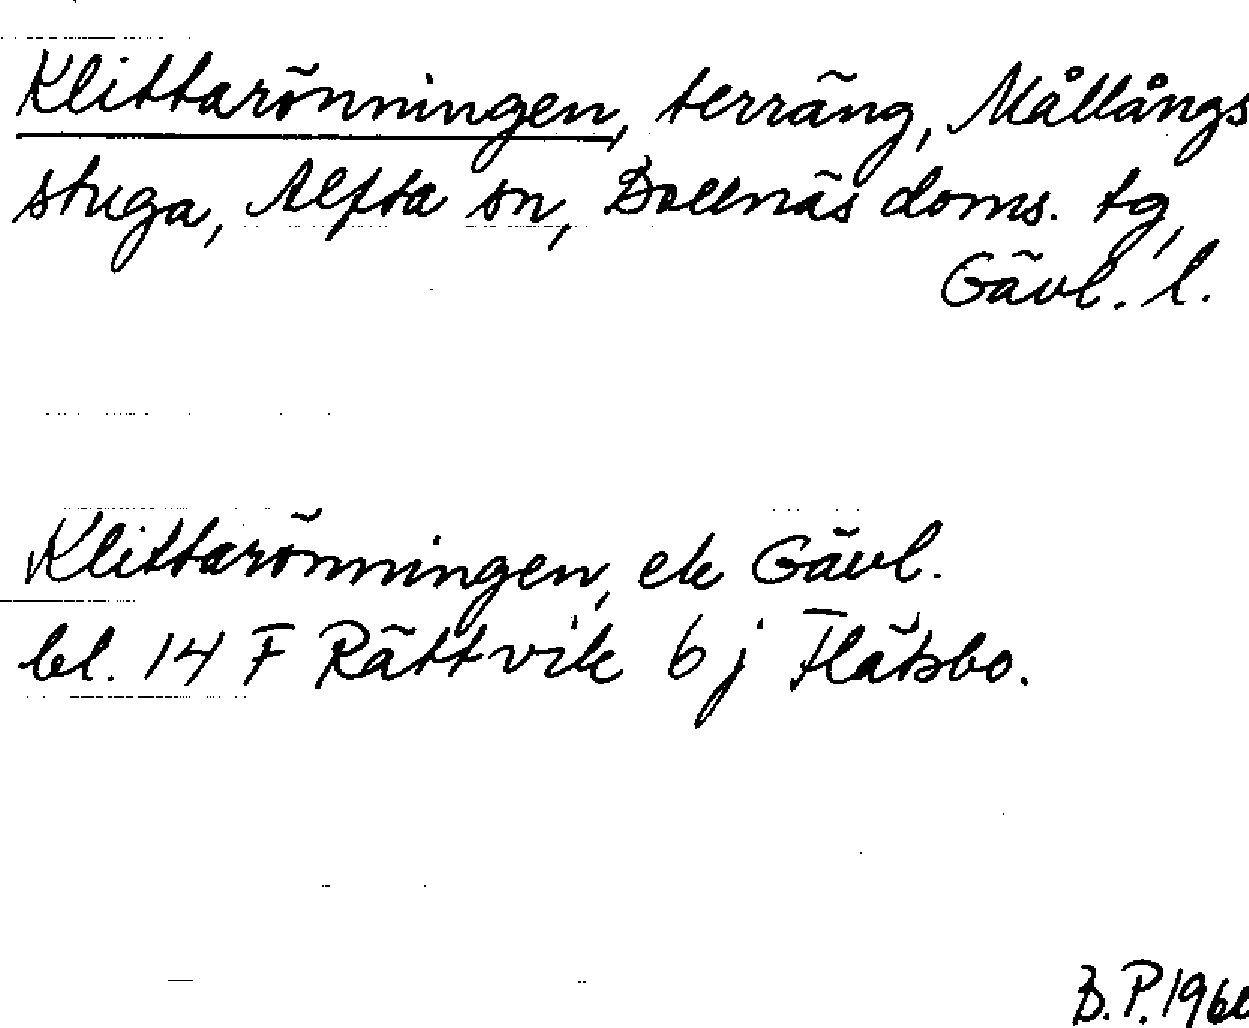 Klittarönningen, terräng, Mållångs
stuga, Alfta sn, Bollnäs doms. tg,
Gävl. l.
Klittarönningen, ek Gävl.
bl. 14 F Rättvik 6 j Flätsbo.
B.P.